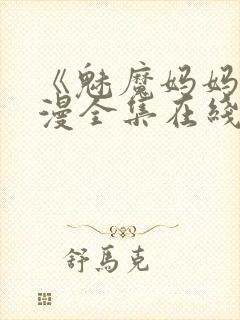 《魅魔妈妈
漫全集在线
舒馬克